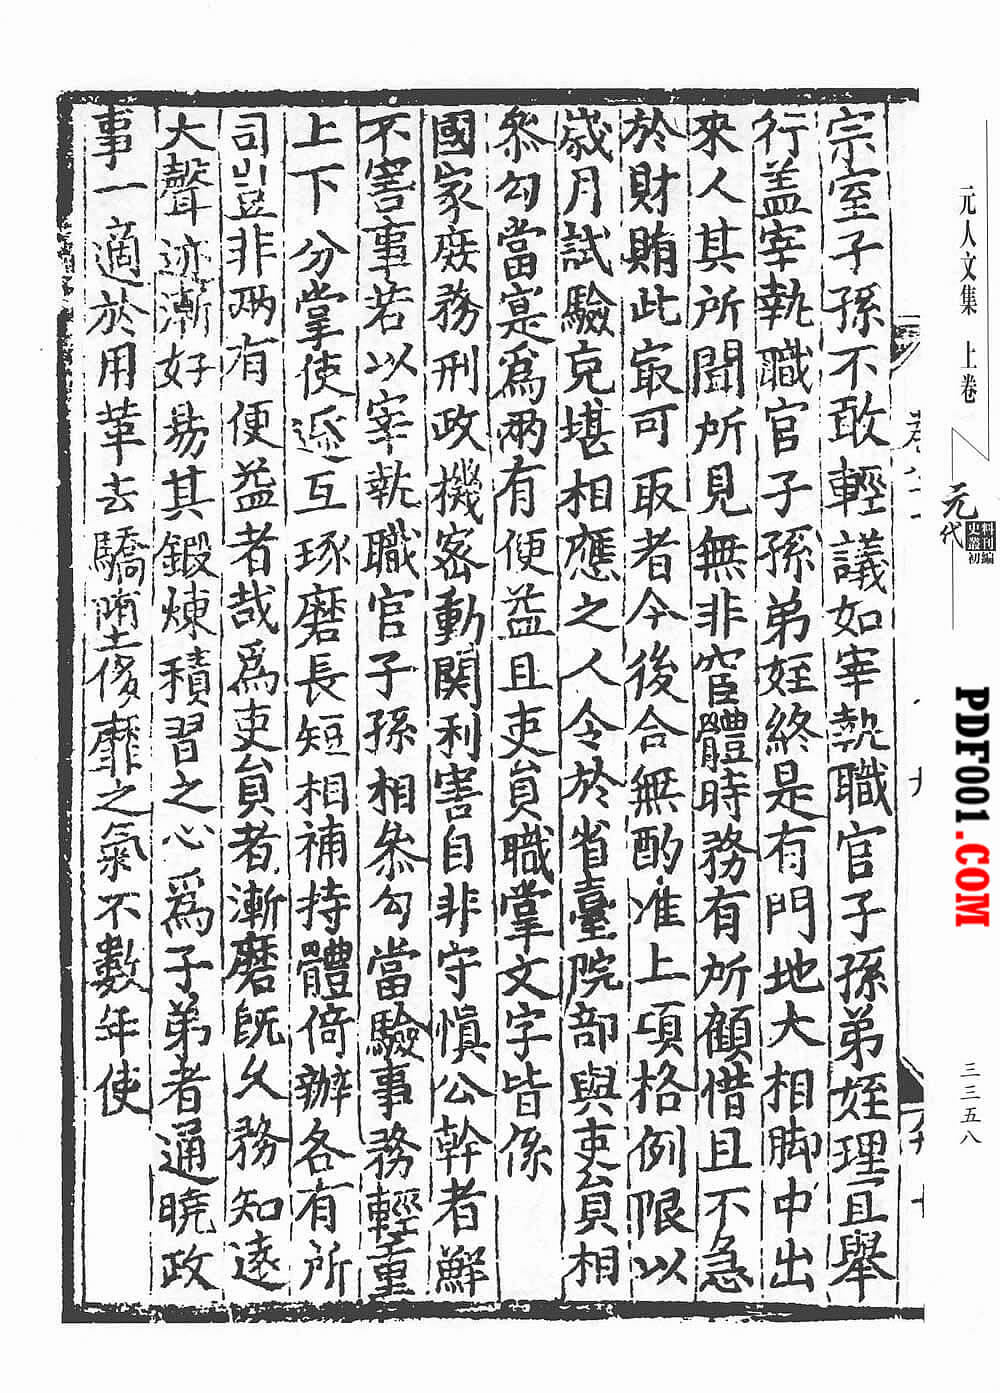 宗室子孫不敢輕議如宰執職官子孫弟姪理宜舉
行盖宰執職官子孫弟姪終是有門地大相脚中出
來人其所聞所見無非宦體時務有所顧惜且不急
於財賄此㝡可取者今後合無酌准上項格例限以
歲月試驗克堪相應之人令於省臺院部與吏員相
叅勾當寔爲兩有便益且吏員職掌文字皆係
國家庻務刑政機宻動関利害自非守慎公幹者鮮
不害事若以宰執職官子孫相叅勾當驗事務輕重
上下分掌使逓互琢磨長短相補持體倚辦各有所
司豈非兩有便益者哉爲吏員者漸磨旣久務知遠
大聲迹漸好易其鍛煉積習之心爲子弟者通曉政
事一適於用革去驕墮侈靡之氣不數年使
元人文集 上卷
元代
史料叢刊初編
三三五八
PDF001.COM